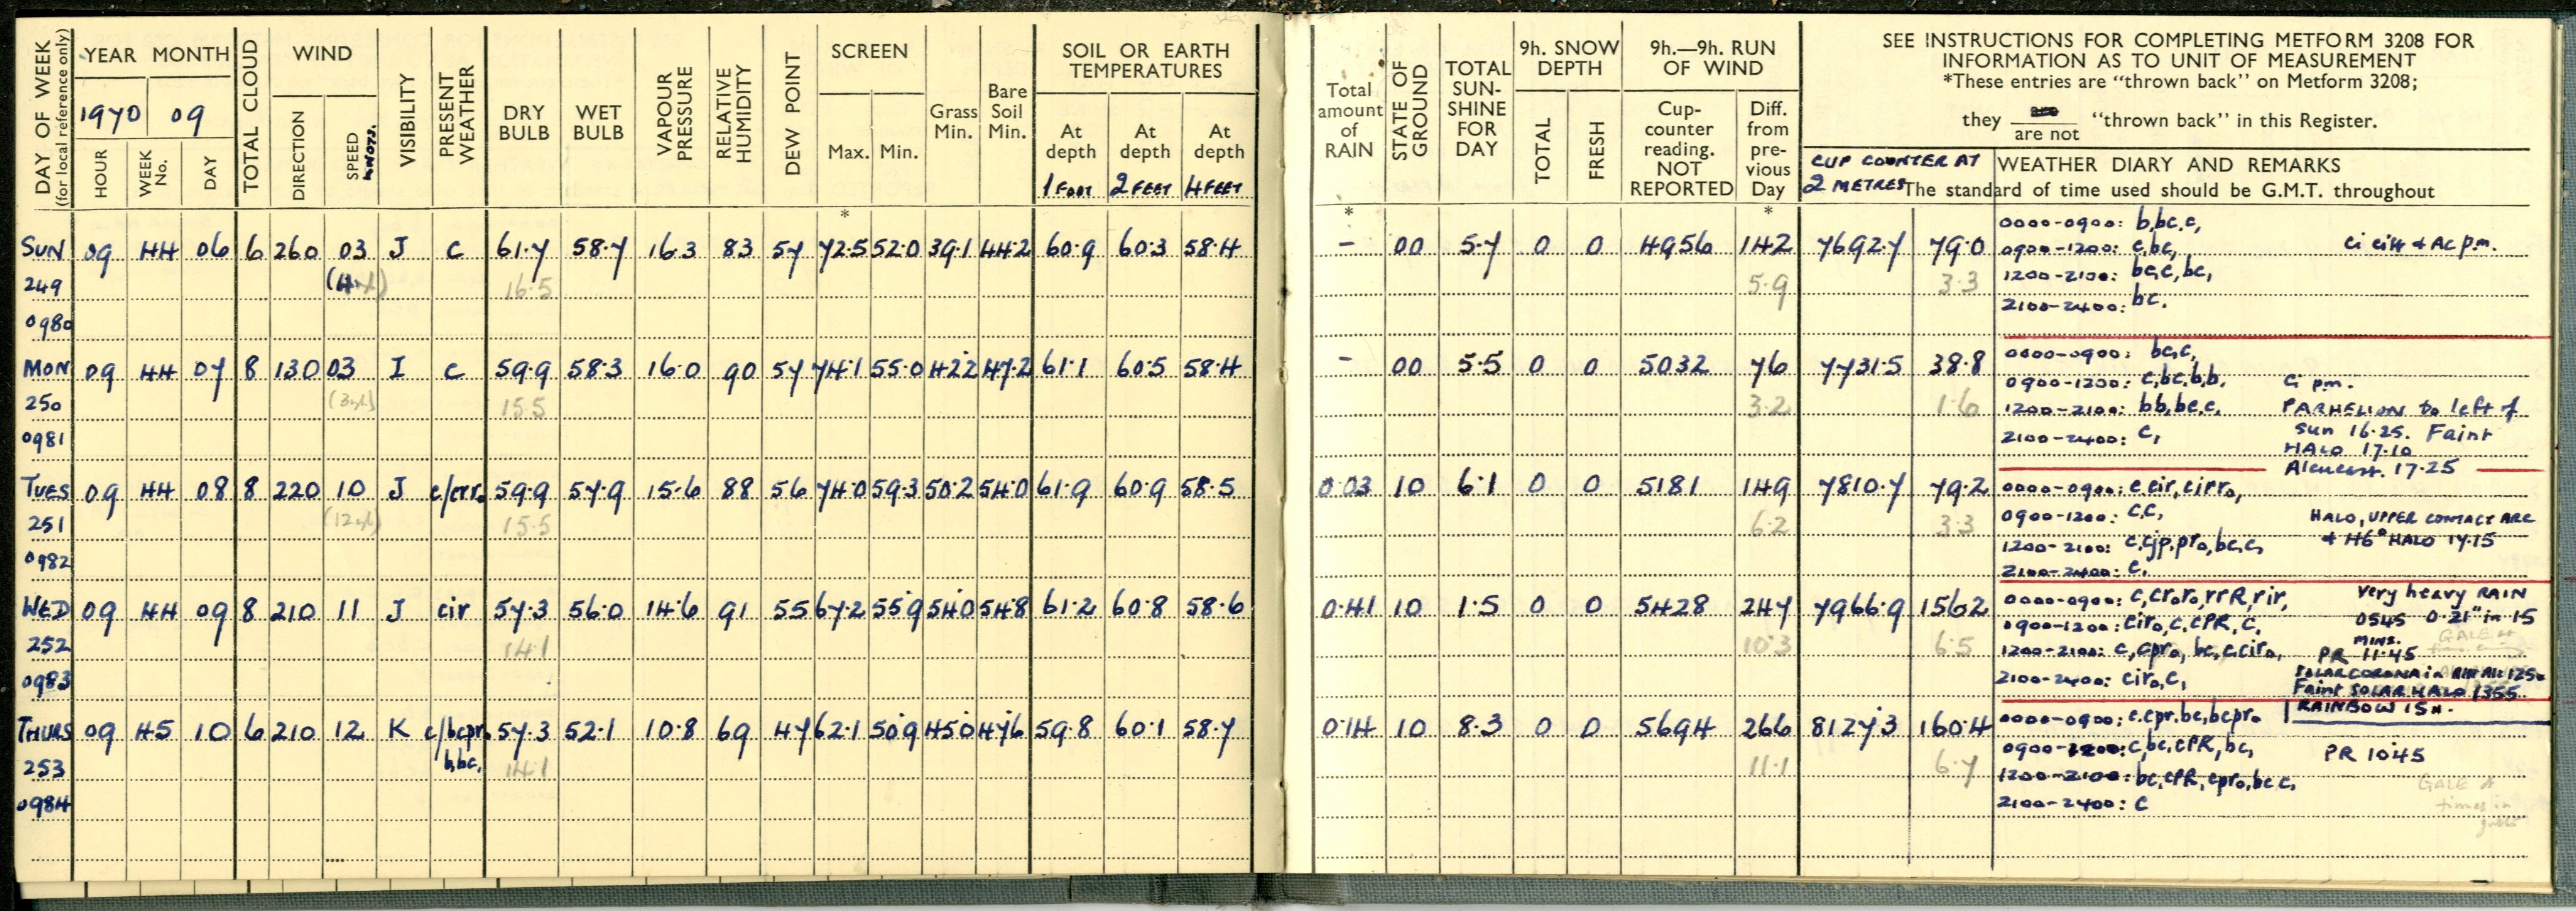 DAY OF WEEK
(for local reference only)
YEAR MONTH
1970 09
HOUR
WEEK No.
DAY
TOTAL CLOUD
WIND
DIRECTION
SPEED KNOTS.
VISIBILITY
PRESENT WEATHER
DRY BULB
WET BULB
VAPOUR PRESSURE
RELATIVE HUMIDITY
DEW POINT
SCREEN
Max. Min.
Grass Min.
Bare Soil Min.
SOIL OR EARTH TEMPERATURES
At depth 1 FOOT
At depth 2 FEET
At depth 4 FEET
Total amount of RAIN
STATE OF GROUND
TOTAL SUN-SHINE FOR DAY
9h. SNOW DEPTH
TOTAL
FRESH
9h.—9h. RUN OF WIND
Cup-counter reading. NOT REPORTED
Diff. from pre-vious Day
SEE INSTRUCTIONS FOR COMPLETING METFORM 3208 FOR
INFORMATION AS TO UNIT OF MEASUREMENT
*These entries are "thrown back" on Metform 3208;
they are not "thrown back" in this Register.
CUP COUNTER AT
2 METRES
WEATHER DIARY AND REMARKS
The standard of time used should be G.M.T. throughout
* * *
SUN 09 44 06 6 260 03 J c 61.7 58.7 16.3 83 57 72.5 52.0 39.1 44.2 60.9 60.3 58.4 - 00 5.7 0 0 4956 142 7692.7 79.0
249 16.5 5.9 3.3
0980
0000-0900: b,bc,c,
0900-1200: c,bc,
1200-2100: bc,c,bc,
2100-2400: bc.
Ci Ci4 + Ac pm.
MON 09 44 07 8 130 03 I c 59.9 58.3 16.0 90 57 74.1 55.0 42.2 47.2 61.1 60.5 58.4 - 00 5.5 0 0 5032 76 7731.5 38.8
250 15.5 3.2 1.6
0981
0000-0900: bc,c,
0900-1200: c,bc,b,b,
1200-2100: bb,bc,c,
2100-2400: c,
Ci pm.
PARHELION to left of
Sun 16.25. Faint
HALO 17.10
17.25
TUES 09 44 08 8 220 10 J 59.9 57.9 15.6 88 56 74.0 59.3 50.2 54.0 61.9 60.9 58.5 0.03 10 6.1 0 0 5181 149 7810.7 79.2
251 15.5 6.2 3.3
0982
0000-0900: c,cir,cirro,
0900-1200: c,c,
1200-2100: c,cjp,pro,bc,c,
2100-2400: c,
HALO, UPPER CONTACT ARC
+ 46° HALO 17.15
WED 09 44 09 8 210 11 J cir 57.3 56.0 14.6 91 55 67.2 55.9 54.0 54.8 61.2 60.8 58.6 0.41 10 1.5 0 0 5428 247 7966.9 156.2
252 14.1 10.3 6.5
0983
0000-0900: c,croro,rrR,rir,
0900-1200: ciro,c,cPR,c,
1200-2100: c,cpro, bc,c,ciro,
2100-2400: ciro,c,
Very heavy RAIN
0545 0.21" in 15
MINS.
PR 11.45
SOLAR CORONA in
Faint SOLAR HALO 1355
RAINBOW 15H.
THURS 09 45 10 6 210 12 K c/bcpr. b,bc, 57.3 52.1 10.8 69 47 62.1 50.9 45.0 47.6 59.8 60.1 58.7 0.14 10 8.3 0 0 5694 266 8127.3 160.4
253 14.1 11.1 6.7
0984
0000-0900: c,cpr,bc,bcpro
0900-1200: c,bc,cPR,bc,
1200-2100: bc,cPR,cpro,bc,c,
2100-2400: c
PR 1045
GALE
times in